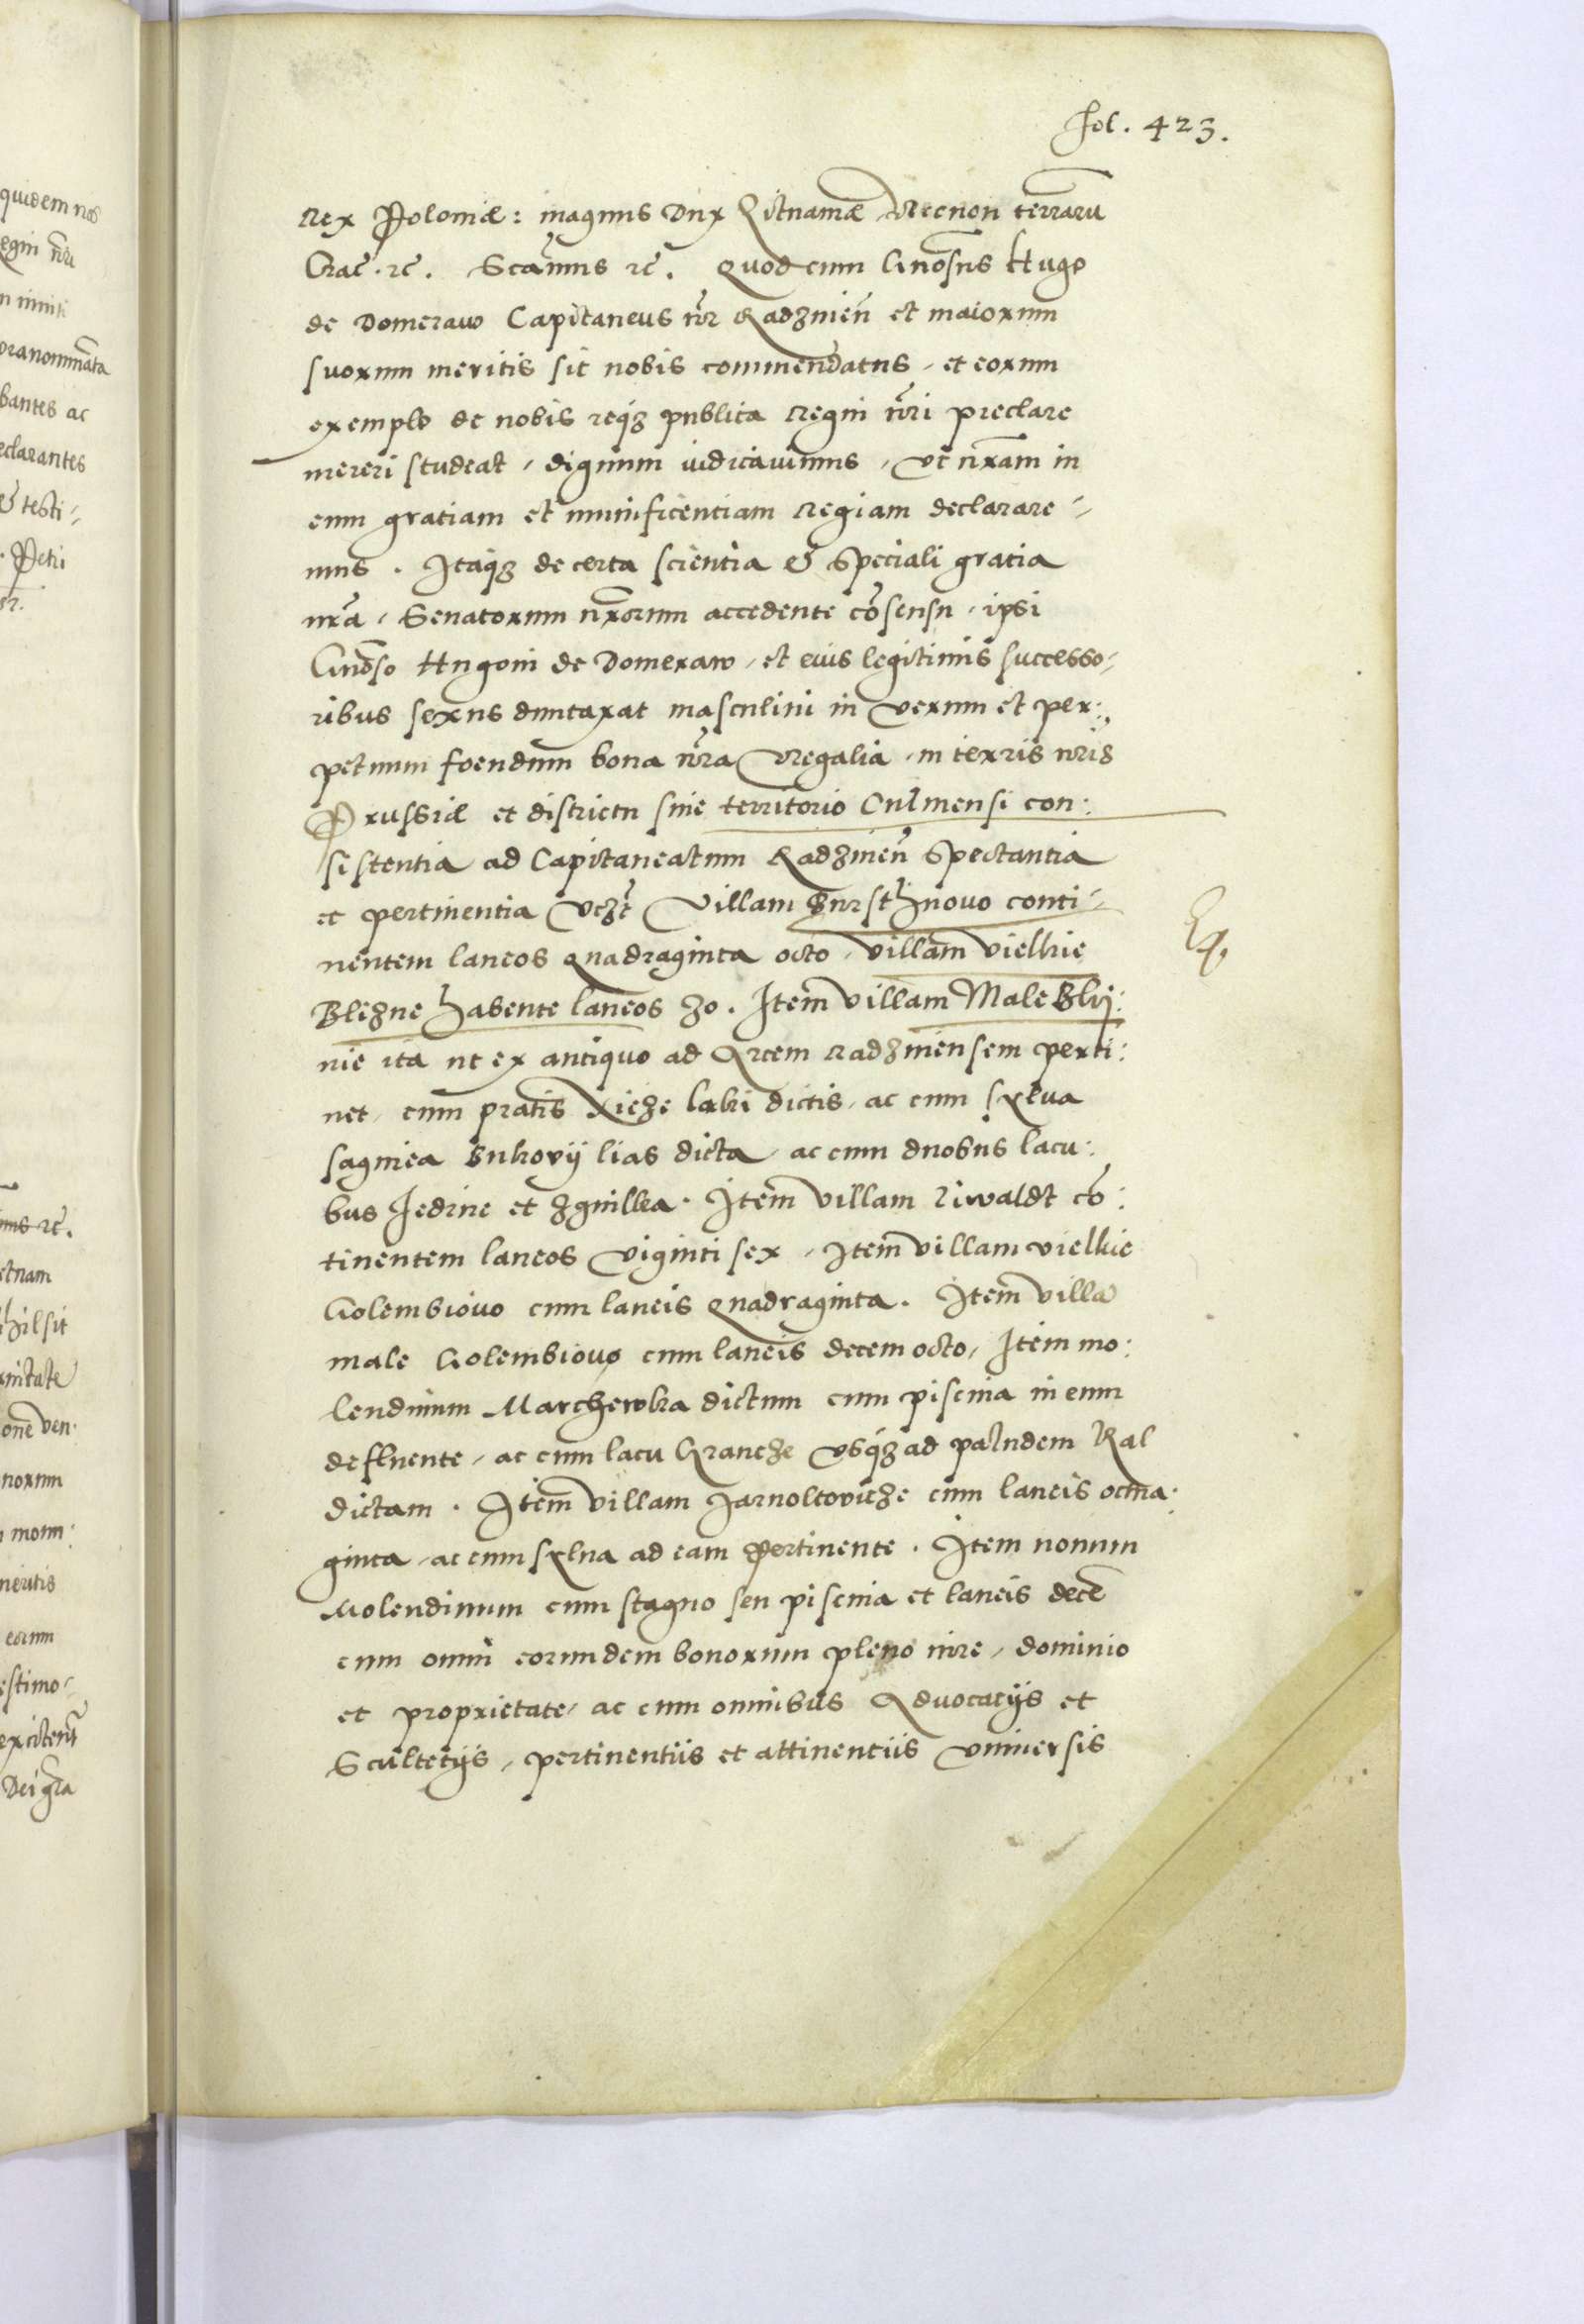 fol. 423.
Rex Poloniæ: magnus Dux Lituaniæ Necnon terrarū
Crac. ꝛc. Scāmus ꝛc. Quod cum Gnosus Hugo
de Domeraw Capitaneus nr̄ Radzineñ et maiorum
suorum meritis sit nobis commendatus, et eorum
exemplo de nobis reqꝫ publica Regni nr̄i preclare
mereri studeat, dignum iudicavimus, ut nr̄am in
eum gratiam et munificentiam Regiam declarare-
mus. Itaqꝫ de certa scientia & speciali gratia
nr̄a, Senatorum nr̄orum accedente cōsensu, ipsi
Gnoso Hugoni de Domeraw, et eius legitimis successo-
ribus sexus duntaxat masculini in verum et per:
petuum foeudum bona nr̄a Regalia, in terris nr̄is
Prussiæ et districtu siue territorio Culmensi con:
sistentia ad Capitaneatum Radzineñ spectantia
et pertinentia vꝫt Villam Bursthinovo conti-
nentem laneos quadraginta octo, villam vielkie
Blezne habente laneos 30. Item villam Male Blij:
nie ita ut ex antiquo ad Arcem Radzinensem perti:
net, cum pratis Xieze laki dictis, ac cum sylva
saginea Bukovy lias dicta, ac cum duobus lacu:
bus Jedrine et Zgnilka. Item villam Riwaldt cō:
tinentem laneos viginti sex, Item villam vielkie
Golembiovo cum laneis quadraginta. Item villā
male Golembiovo cum laneis decem octo, Item mo:
lendinum Marchewka dictum cum piscina in eum
defluente, ac cum lacu Krancze vsqꝫ ad paludem Kal
dictam. Item villam Jarnoltovicze cum laneis octua:
ginta, ac cum sylua ad eam pertinente. Item nouum
Molendinum cum stagno seu piscina et laneis decē
cum omni eorundem bonorum pleno iure, dominio
et proprietate, ac cum omnibus Aduocatijs et
Scultetijs, pertinentiis et attinentiis vniuersis